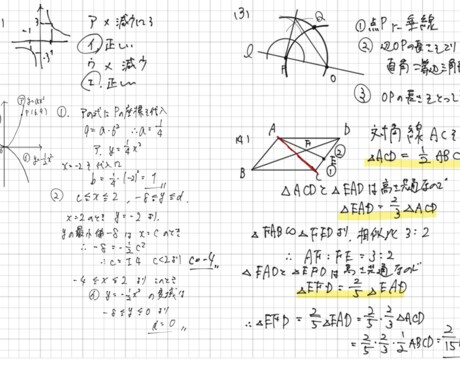 ア × 減少
イ. 正しい
ウ × 減少
エ. 正しい
①. アの式に Pの座標を代入
9 = a・6² ∴ a = 1/4
ア. y = 1/4 x²
x = -2 を代入
b = 1/4・(-2)² = 1
② c ≤ x ≤ 2, -8 ≤ y ≤ d.
x = 2 のとき y = -2 より
yの最小値 -8 は x = c のとき
∴ -8 = -1/2 c²
∴ c = ±4 c < 2 より c = -4
-4 ≤ x ≤ 2 より このとき
④ y = -1/2 x² の変域は
-8 ≤ y ≤ 0 より
d = 0
(3)
ℓ
P
Q
O
① 点Pに垂線
② OPの長さ
直角二等辺三角
③ OPの長さをとって
(4)
A
D
F
E
②
①
B
C
対角線 AC
△ACD = 1/2 ABC
△ACDと△EADは高さ共通なので
△EAD = 2/3 △ACD
△FAB∽△FED より, 相似比 3:2
∴ AF:FE = 3:2
△EADと△EFDは高さ共通なので
△EFD = 2/5 △EAD
∴ △EFD = 2/5 △EAD = 2/5・2/3 △ACD
= 2/5・2/3・1/2 ABCD = 2/15